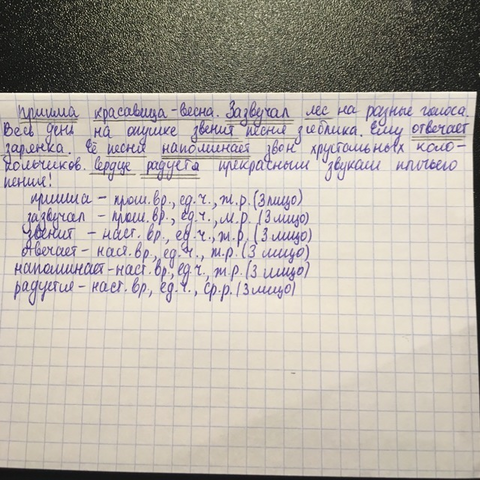 Пришла красавица-весна. Зазвучал лес на разные голоса.
Весь день на опушке звенит песня зяблика. Ему отвечает
зарянка. Её песня напоминает звон хрустальных коло-
кольчиков. Сердце радуется прекрасным звукам птичьего
пения!
пришла - прош.вр., ед.ч., ж.р. (3 лицо)
зазвучал - прош.вр., ед.ч., м.р. (3 лицо)
звенит - наст. вр., ед.ч., ж.р. (3 лицо)
отвечает - наст. вр., ед.ч., ж.р. (3 лицо)
напоминает - наст. вр., ед.ч., ж.р. (3 лицо)
радуется - наст. вр., ед.ч., ср.р. (3 лицо)